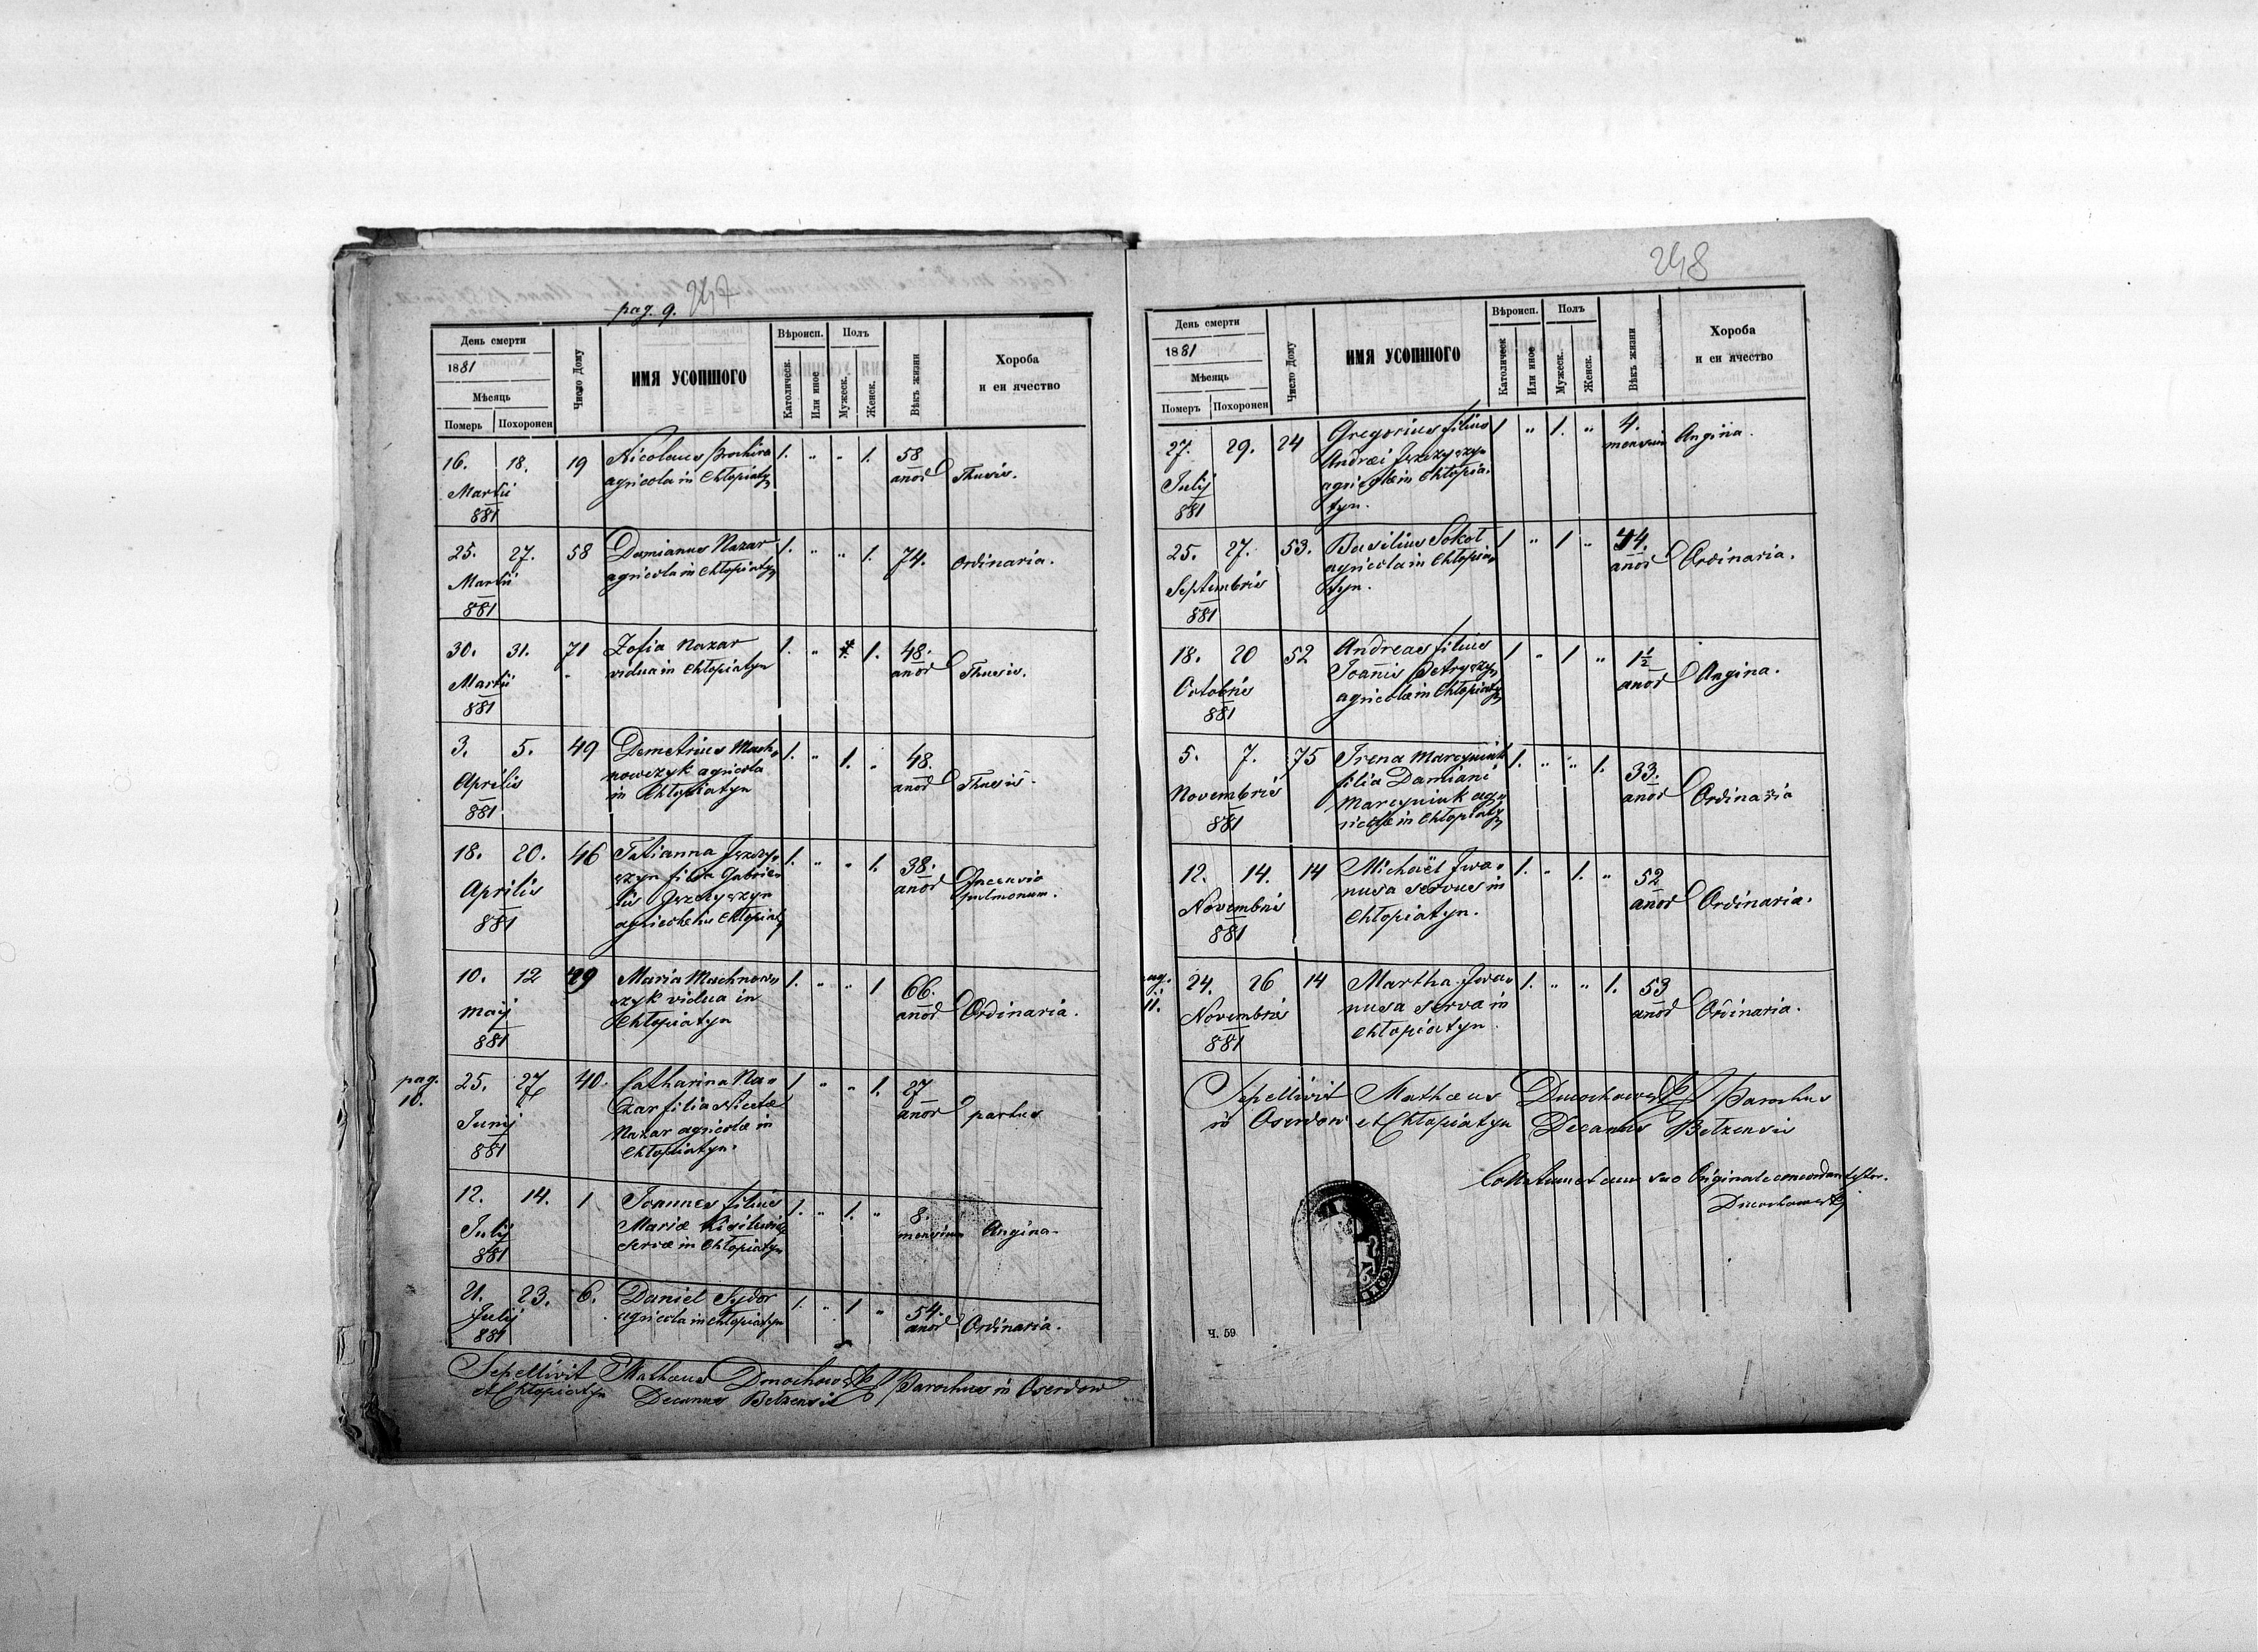 pag. 9. 247
День смерти
1881
Мѣсяць
Померъ Похоронен
Число Дому
ИМЯ УСОПШОГО
Вѣроисп.
Католическ.
Или иное
Полъ
Мужеск.
Женск.
Вѣкъ жизни
Хороба
и еи ячество
16. 18. 19 Nicolaus Prochira 1. " " 1. 58
Martii agricola in Chłopiatyn anor Thusis.
881
25. 27. 58 Damianus Nazar 1. " " 1. 74. Ordinaria.
Martii agricola in Chłopiatyn
881
30. 31. 71 Zofia Nazar 1. " 1. 48.
Martii vidua in Chłopiatyn anor Thusis.
881
3. 5. 49 Demetrius Mach- 1. " 1. " 48.
Aprilis nowczyk agricola anor Thusis.
881 in Chłopiatyn
18. 20. 46 Tatianna Jszczy- 1. " " 1. 38.
Aprilis szyn filia Gabrie- anor
881 lis Jszczyszyn pulmonum.
agricolae in Chłopiatyn
10. 12 49 Maria Machnow- 1. " " 1 66.
maij czyk vidua in anor Ordinaria.
881 Chłopiatyn
pag. 10.
25. 27 40. Catharina Na- 1. " " 1. 27
Junij zar filia Nicetae anor partus
881 Nazar agricolae in
Chłopiatyn.
12. 14. 1 Joannes filius 1. " 1. " 8.
Julij Mariae mensium Angina
881 servae in Chłopiatyn
21. 23. 6. Daniel Sydor 1. " 1 " 54.
Julij agricola in Chłopiatyn anor Ordinaria.
881
Sepellivit Mathaeus Dmochowski Parochus in Oserdow
et Chłopiatyn Decanus Bełzensis
248
День смерти
1881
Мѣсяць
Померъ Похоронен
Число Дому
ИМЯ УСОПШОГО
Вѣроисп.
Католическ
Или иное
Полъ
Мужеск.
Женск.
Вѣкъ жизни
Хороба
и еи ячество
27. 29. 24 Gregorius filius 1 " 1. " 4.
Julij Andrei Jszczyszyn mensium Angina.
881 agricolae in Chłopia-
tyn.
25. 27. 53. Basilius Sokoł 1 " 1 " 44.
Septembris agricola in Chłopia- anor Ordinaria.
881 tyn.
18. 20 52 Andreas filius 1 " 1 " 1 1/2
Octobris Joannis Petryszyn anor Angina.
881 agricolae in Chłopiatyn
5. 7. 75 Irena Marcyniuk 1. " " 1. 33.
Novembris filia Damiani anor Ordinaria
881 Marcyniuk ag-
ricolae in Chłopiatyn
12. 14. 14 Michaël Iwa- 1. " 1. " 52
Novembris nusa servus in anor Ordinaria.
881 Chłopiatyn.
pag. 11.
24. 26 14 Martha Iwa- 1. " " 1. 53
Novembris nusa serva in anor Ordinaria.
881 Chłopiatyn.
Sepellivit Mathaeus Dmochowski Parochus
in Oserdow et Chłopiatyn Decanus Bełzensis
Collatum et cum suo Originale concordare testor.
Dmochowski
Ч. 59